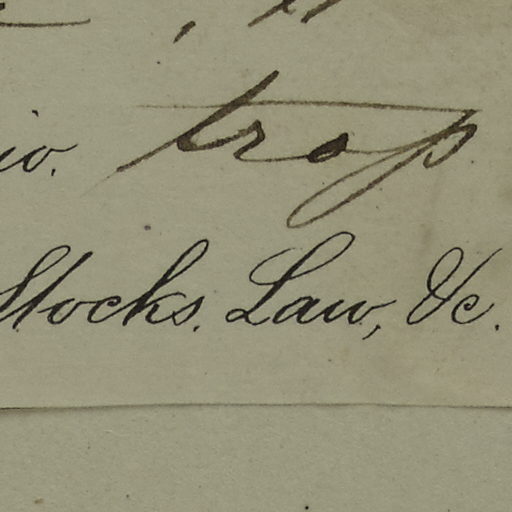 io. trap
Stocks. Law, &c.